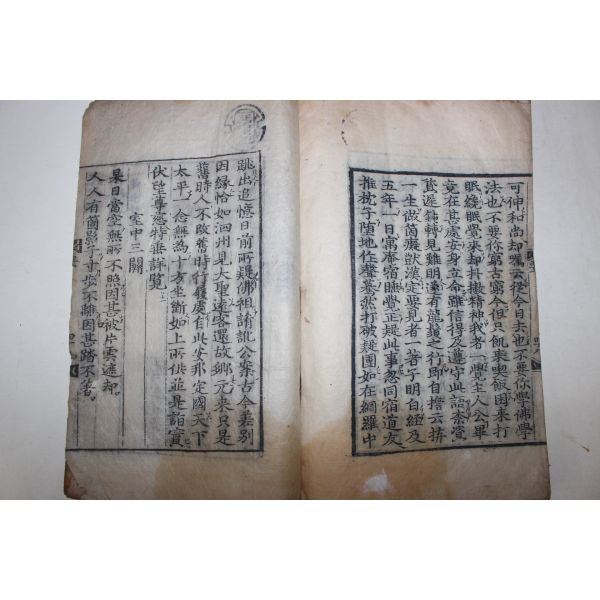 可仲和尚却囑云從今日去也不要你學佛學
法也不要你窮古窮今但只飢來喫飯困來打
眠纔眠覺來却抖擻精神我者一覺主人公畢
竟在甚處安身立命雖信得及遵守此語柰資
遲鈍轉見難明遂有龍鬚之行即自擔云拚
一生做箇癡獃漢定要見者一著子明白經及
五年一日寓菴宿睡覺正疑此事忽同宿道友
推枕子墮地作聲驀然打破疑團如在網羅中
跳出追憶日前所疑佛祖誵訛公案古今差別
因緣恰如泗州見大聖遠客還故鄉元來只是
舊時人不改舊時行履處自此安邦定國天下
太平一念無爲十方坐斷如上所供並是詣實
伏望尊慈特垂詳覽
室中三關
杲日當空無所不照因甚被片雲遮却
人人有箇影子寸步不離因甚踏不著